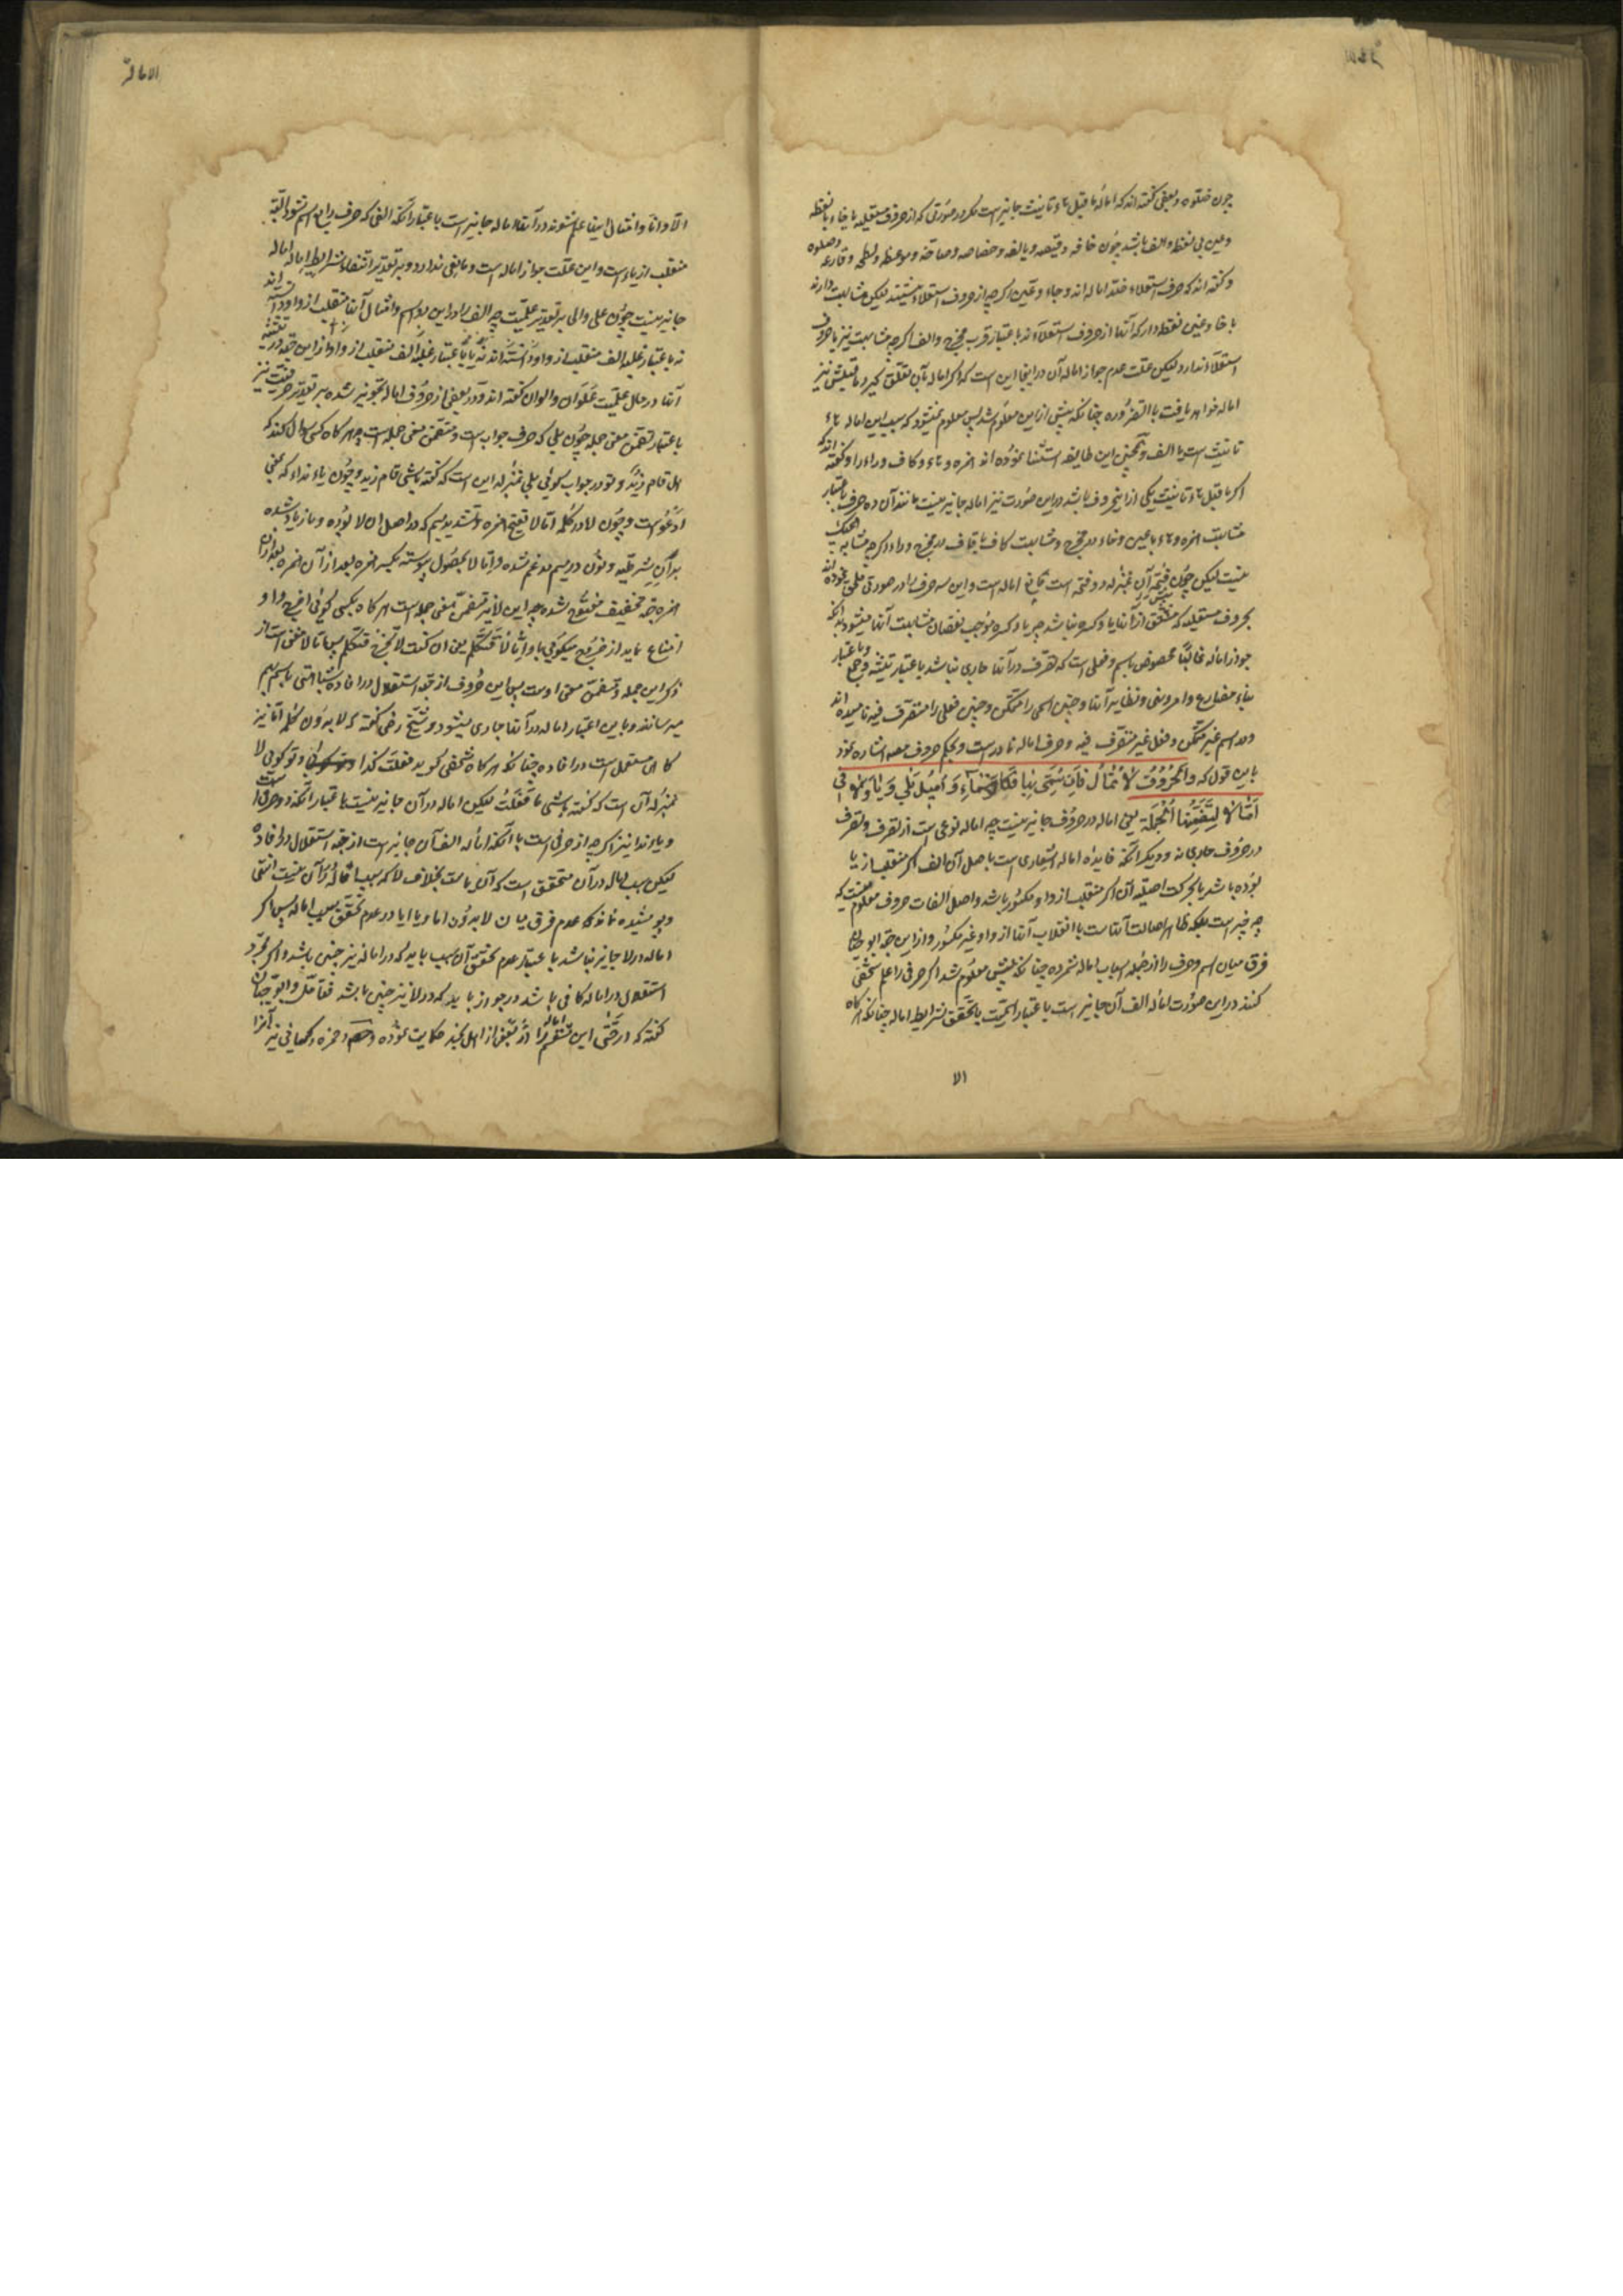 الامالة
چون صلوه و بعضی گفته اند که اماله ما قبل تاء تانیث جایز است مکر در صورتی که از حروف مستعلیه یا حاء بانقطه
و عین بی نقطه و الف باشد چون خاصه و
و گفته اند که حرف استعلاء ضد اماله اند و حاء و عین اکرچه از حروف استعلاء نیستند لیکن مشابهت دارند
با خا و غین نقطه دار که آنها از حروف استعلاء اند باعتبار قرب مخرج و الف اکرچه مشابهت نیز با حروف
استعلاء ندارد لیکن علت عدم جواز اماله آن در اینجا این است که اکر اماله بآن تعلق کیرد ما قبلش نیز
اماله خواهد یافت بالضروره چنانکه پیش ازین معلوم شد پس معلوم نمیشود که سبب این اماله تاء
تانیث است یا الف و همچنین این طایفه استثنا نموده اند همزه و هاء و کاف و راء را و گفته اند که
اکر ما قبل تاء تانیث یکی از این حروف باشد در این صورت نیز اماله جایز نیست مانند آن ده حرف باعتبار
مشابهت همزه و هاء با عین و حاء در مخرج و مشابهت کاف با قاف در مخرج و راء اکرچه مشابه
نیست لیکن چون فتحه آن بمنزله دو فتحه است مانع اماله است و این سه حرف را در صورتی ملحق نموده اند
بحروف مستعلیه که پیش از آنها یا و کسره نباشد چه یا و کسره موجب نقصان مشابهت آنها میشود بدانکه
جواز اماله غالبا مخصوص باسم و فعلی است که تصرف در آنها جاری باشد باعتبار تثنیه و جمع و باعتبار
بناء مضارع و امر و نهی و نظایر آنها و چنین اسمی را متمکن و چنین فعلی را متصرف فیه نامیده اند
و در اسم غیر متمکن و فعل غیر متصرف فیه و حرف اماله نادر است و بحکم حروف مصه اشاره نمود
باین قول که و الحروف لا تمال فان سمی بها فکالاسماء و امیل بلی و یا و لا فی
امّالا لتضمنها الجملة یعنی اماله در حروف جایز نیست چه اماله نوعی است از تصرف و تصرف
در حروف جاری نه و دیکر آنکه فایده اماله اشعاری است باصل آن الف اکر منقلب از یا
بوده باشد یا بحرکت اصلیه آن اکر منقلب از واو مکسور باشد و اصل الفات حروف معلوم نیست که
چه چیز است بلکه ظاهر اصالت آنهاست یا انقلاب آنها از واو غیر مکسور و از این جهة ابو حیان
فرق میان اسم و حرف را از جمله اسباب اماله شمرده چنانکه پیش معلوم شد اکر حرفی را علم شخصی
کنند در این صورت اماله الف آن جایز است باعتبار اسمیت با تحقق شرایط اماله چنانکه هرکاه
الا
الامالة
الا و امّا و امثال اینها علم شوند در آنها اماله جایز است باعتبار آنکه الفی که حرف رابع اسم شود البته
منقلب از یاء است و این علت جواز اماله است و مانعی ندارد و بر تقدیر انتفاء شرایط اماله اماله
جایز نیست چون علی و الی بر تقدیر علمیت چه الف را در این دو اسم و امثال آنها منقلب از واو دانسته اند
نه یا باعتبار غلبه الف منقلب از واو و از این جهة در تثنیه
آنها در حال علمیت علوان و الوان گفته اند و در بعضی از حروف اماله تجویز شده بر تقدیر حرفیت نیز
باعتبار تضمن معنی جمله چون بلی که حرف جواب است و متضمن معنی جمله است چه هرکاه کسی سؤال کند که
هل قام زید و تو در جواب کوئی بلی بمنزله این است که گفته باشی قام زید و چون یاء نداء که بمعنی
ادعو است و چون لا در کلمه امّا لا بفتح همزه و تشدید میم که در اصل ان لا بوده و ما زیاد شده
بر آن شرطیه و نون در میم مدغم شده و امّا لا بحصول پیوسته بکسر همزه بعد از آن همزه بعد از آن
همزه جهة تخفیف مفتوح شده چه این لا نیز متضمن معنی جمله است هر کاه بکسی کوئی اخرج و او
امتناع نماید از خروج میکوئی باو امّا لا فتکلم یعنی ان کنت لا تخرج فتکلم پس امّا لا مغنی است از
ذکر این جمله و متضمن معنی اوست پس این حروف از جهة استقلال در افاده شباهتی باسم بهم
میرسانند و باین اعتبار اماله در آنها جاری میشود و شیخ رضی گفته که لا بدون کلمه امّا نیز
کاهی مستعمل است در افاده چنانکه هر کاه شخصی کوید فعلت کذا و تو کوئی لا
بمنزله آن است که گفته باشی ما فعلت لیکن اماله در آن جایز نیست باعتبار آنکه دو حرفی است
و یاء ندا نیز اکرچه از حرفی است با آنکه اماله الف آن جایز است از جهة استقلال در افاده
لیکن سبب اماله در آن متحقق است که آن یاست بخلاف لا که سبب اماله در آن نیست انتهی
و پوشیده نماند که عدم فرق میان لا بدون اما و یا ایا در عدم تحقق سبب اماله پس اکر
اماله در لا جایز نباشد باعتبار عدم تحقق آن سبب باید که در امالا نیز چنین باشد و اکر مجرد
استقلال در اماله کافی باشد در جواز باید که در لا نیز چنین باشد فتامل و ابو حیان
گفته که در حتی این مقسم اماله را از بعضی از اهل نجد حکایت نموده و حمزه و کسائی نیز آنرا